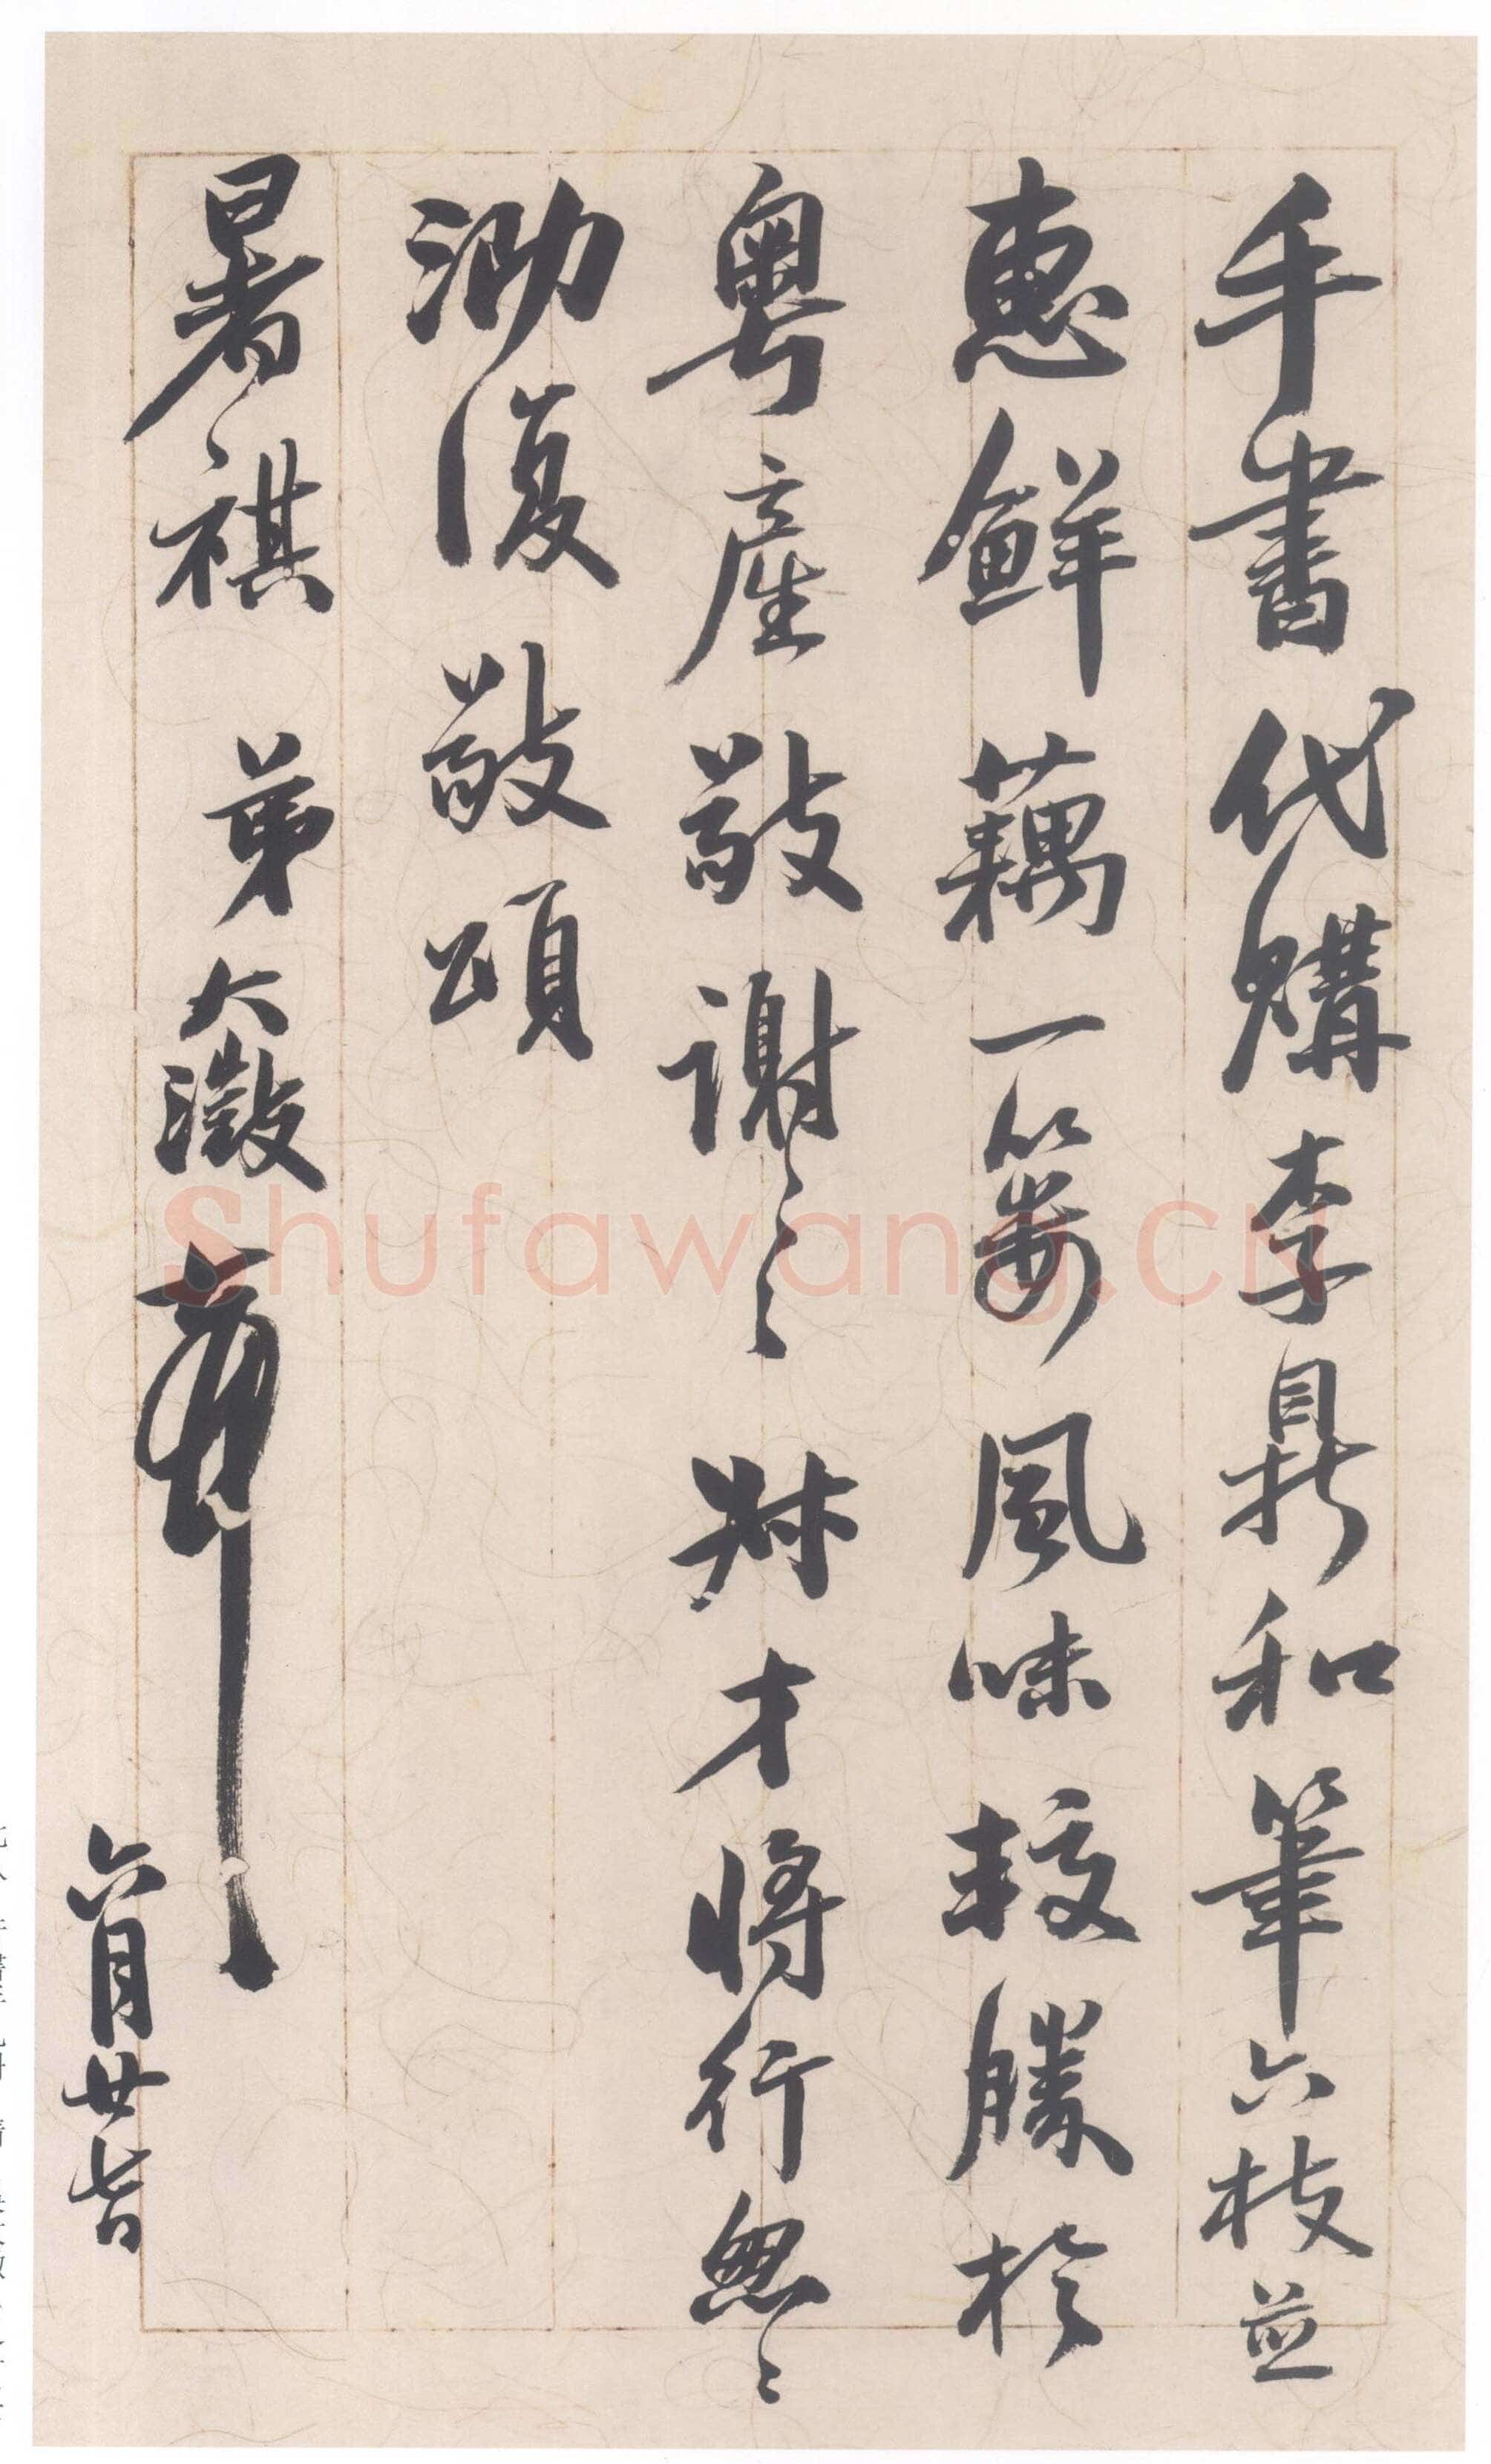 手書代購李鼎和筆六枝並
惠鮮藕一簍風味較勝於
粵產敬謝〻〻叔才將行怱〻
泐復敬頌
暑祺 弟大澂
六月廿七日
Shufawang.CN